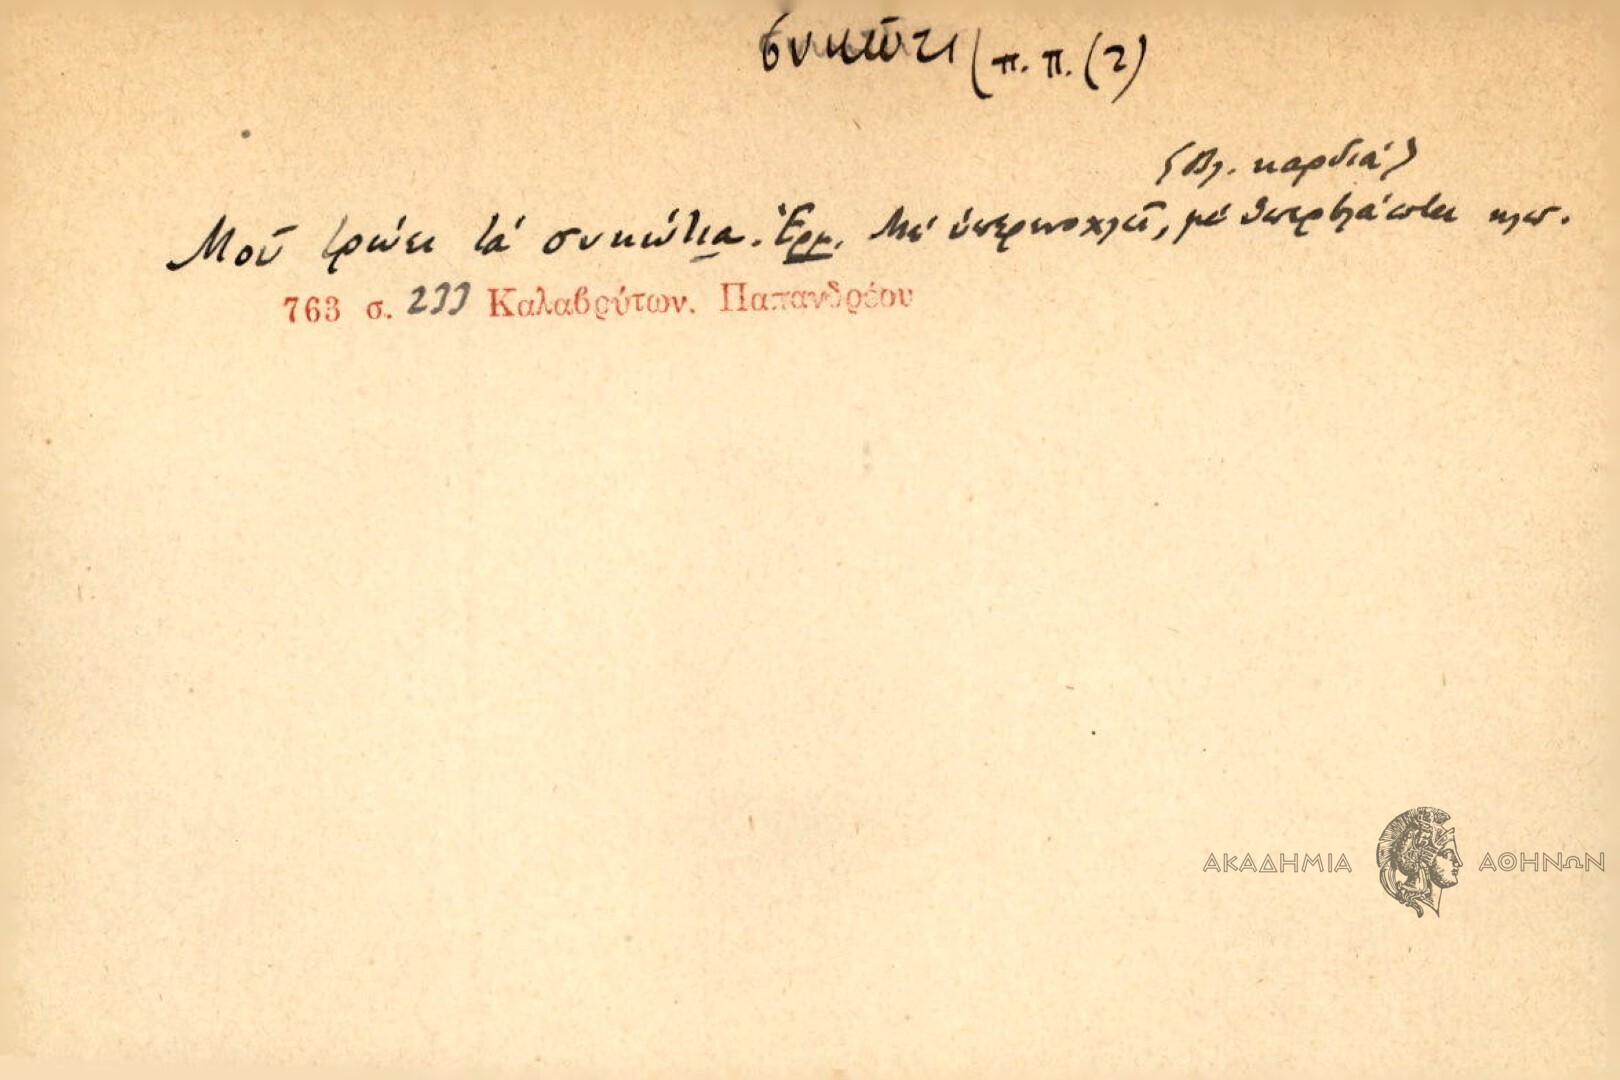 συκῶτι (π. π. (2)
(Βλ. καρδιά)
Μοῦ τρώει τά συκώτια. Ἑρμ. Μέ ὑπερενοχλεῖ, μέ κλπ.
763 σ. 233 Καλαβρύτων. Παπανδρέου
ΑΚΑΔΗΜΙΑ ΑΘΗΝΩΝ